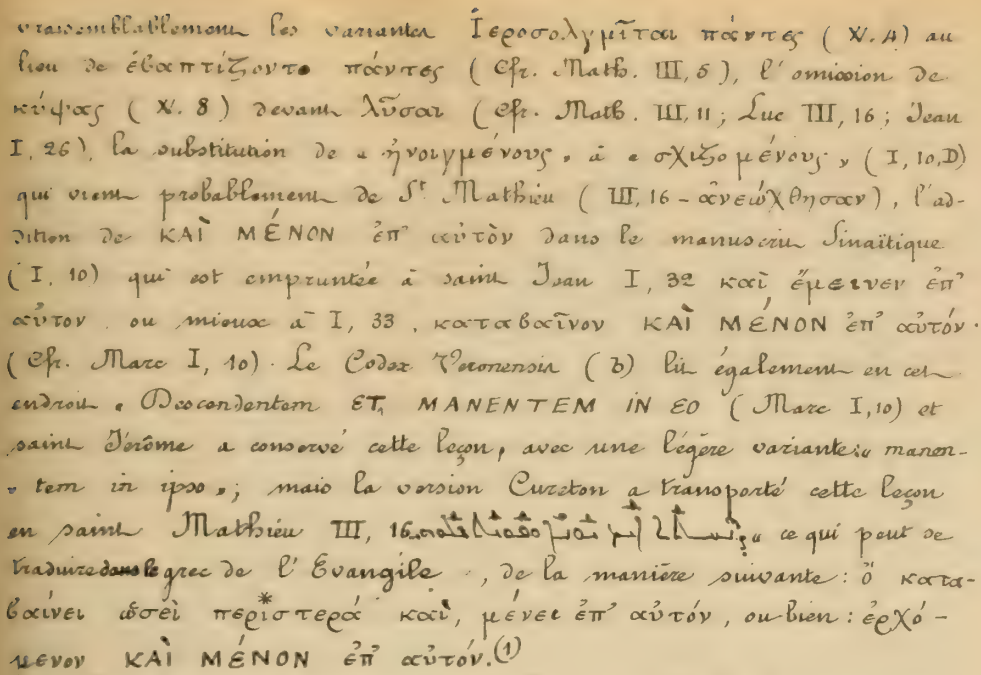 vraisemblablement les variantes Ἱεροσολυμῖται πάντες (V. 4) au
lieu de ἐβαπτίζοντο πάντες (Cfr. Math. III, 5), l'omission de
κύψας (V. 8) devant λῦσαι (Cfr. Math. III, 11; Luc III, 16; Jean
I, 26), la substitution de « ἠνοιγμένους » à « σχιζομένους » (I, 10, D)
qui vient probablement de St Mathieu (III, 16 - ἀνεώχθησαν), l'ad-
dition de ΚΑὶ ΜΈΝΟΝ ἐπ' αὐτὸν dans le manuscrit Sinaïtique
(I, 10) qui est empruntée à saint Jean I, 32 καὶ ἔμεινεν ἐπ'
αὐτον ou mieux à I, 33, καταβαῖνον ΚΑὶ ΜΈΝΟΝ ἐπ' αὐτόν.
(Cfr. Marc I, 10). Le Codex Veronensis (b) lit également en cet
endroit « Descendentem ET MANENTEM IN EO (Marc I, 10) et
saint Jérôme a conservé cette leçon, avec une légère variante: « manen-
» tem in ipso »; mais la version Cureton a transporté cette leçon
en saint Mathieu III, 16 ce qui peut se
traduire dans le grec de l'Evangile, de la manière suivante: ὃ κατα-
βαίνει ὡσεὶ περιστερά* καὶ, μένει ἐπ' αὐτόν, ou bien: ἐρχό-
μενον ΚΑὶ ΜΈΝΟΝ ἐπ' αὐτόν.(1)